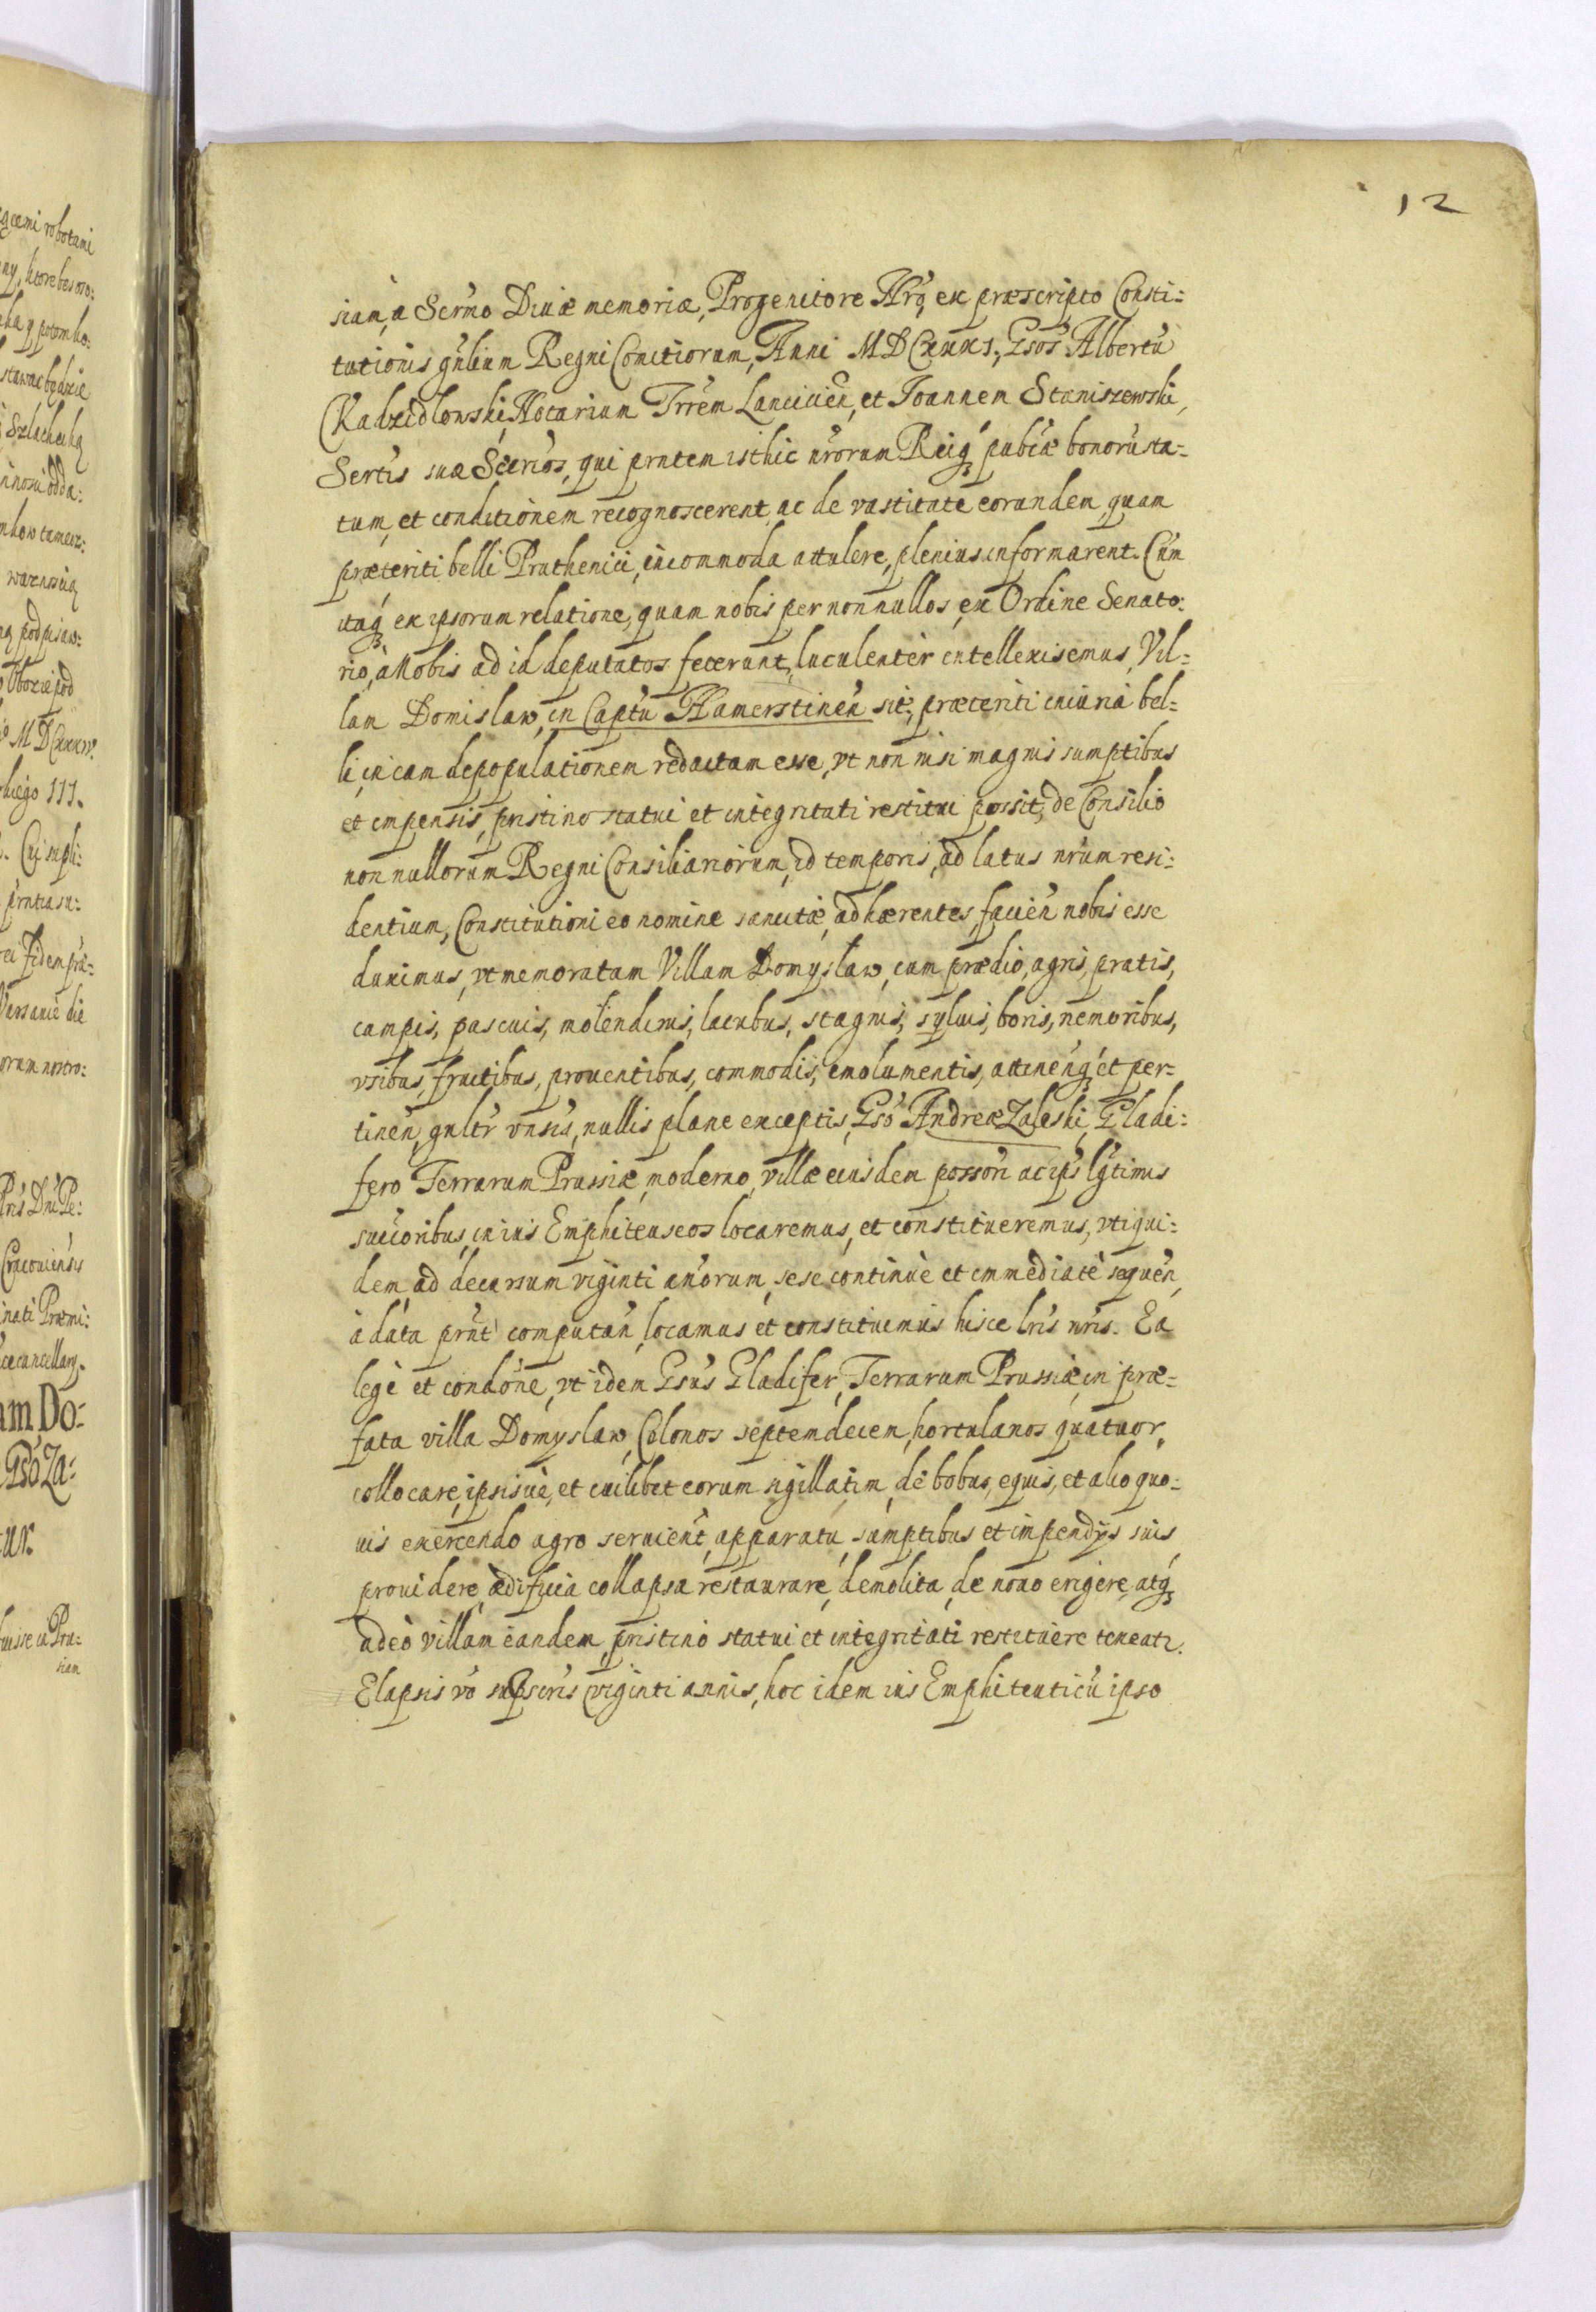 12
siam, a Sermo Diuæ memoriæ, Progenitore Nro, ex præscripto Consti:
tutionis gnlium Regni Comitiorum, Anni MDCXXXI, Gsos Albertũ
Kadzidlowski, Notarium Trrem Lanciciẽn, et Joannem Staniszewski,
Sertis suæ Scerios, qui prntem isthic nrorum Reiq pubcæ bonorũ sta-
tum, et conditionem recognoscerent, ac de vastitate eorundem, quam
præteriti belli Pruthenici, incommoda attulere, plenius informarent. Cũm
itaq ex ipsorum relatione, quam nobis per nonnullos, ex Ordine Senato:
rio, à Nobis ad id deputatos fecerunt, luculentèr intellexisemus, Vil-
lam Domislaw, in Captũ Hamerstinẽn sit, præteriti iniuria bel-
li, in eam depopulationem redactam esse, vt non nisi magnis sumptibus
et impensis, pristino statui et integritati restitui possit, de Consilio
nonnullorum Regni Consiliariorum, id temporis, ad latus nrum resi:
dentium, Constitutioni eo nomine sancitæ, adhærentes, faciẽn nobis esse
duximus, vt memoratam Villam Domyslaw, cum prædio, agris, pratis,
campis, pascuis, molendinis, lacubus, stagnis, syluis, boris, nemoribus,
vsibus, fructibus, prouentibus, commodis, emolumentis, attinẽnq et per-
tinẽn, gnltr vnsis, nullis plane exceptis, Gso Andreæ Zaleski, Gladi:
fero Terrarum Prussiæ, moderno, villæ eiusdem possori ac ips lgtimis
succoribus, in ius Emphiteuseos locaremus, et constitueremus, vti qui:
dem, ad decursum viginti anorum, sese continuè et immediatè sequẽn,
à data prnt computañ, locamus et constituimus hisce lris nris. Ea
lege et condone, vt idem Gsus Gladifer, Terrarum Prussiæ, in præ-
fata villa Domyslaw, Colonos septemdecem, hortulanos quatuor,
collocare, ipsisuè, et cuilibet eorum sigillatim, de bobus, equis, et alio quo-
uis exercendo agro seruient, apparatu, sumptibus et impendijs suis,
prouidere, ædificia collapsa restaurare, demolita, de nouo erigere, atq
adeò villam eandem, pristino statui et integritati restituere teneatr.
Elapsis vo supscris viginti annis, hoc idem ius Emphiteuticũ ipso